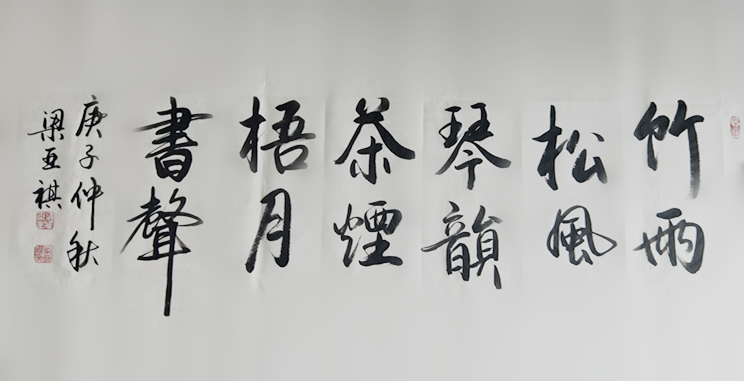 竹雨
松風
琴韻
茶煙
梧月
書聲
庚子仲秋
梁亚祺